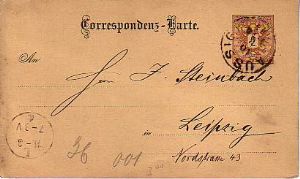 Correspondenz-Karte.
2
AUSSIG
An
Herrn F. Steinbach
in Leipzig
Nordstrasse 43
36 001